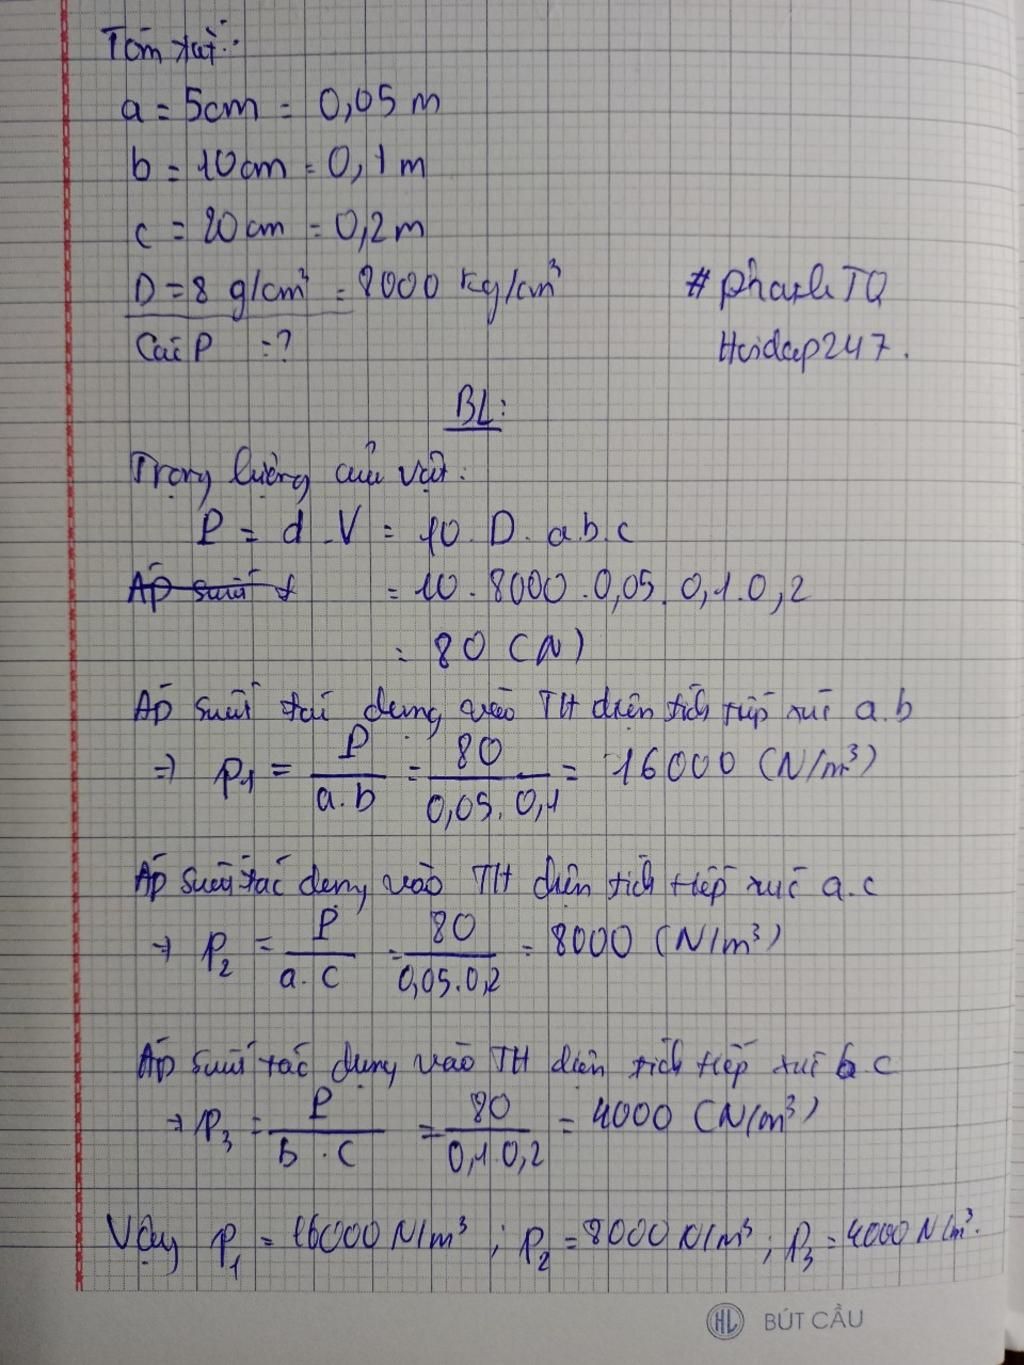 Tóm tắt:
a = 5cm = 0,05 m
b = 10cm = 0,1 m
c = 20cm = 0,2 m
D = 8 g/cm³ = 8000 kg/cm³
# PhanhTQ
Các P = ?
Hoidap247.
BL:
Trọng lượng của vật:
P = d . V = 10 . D . a.b.c
Áp suất t = 10 . 8000 . 0,05 . 0,1 . 0,2
= 80 (N)
Áp suất tác dụng vào TH diện tích tiếp xúc a.b
⇒ p₁ = P / a.b = 80 / 0,05 . 0,1 = 16000 (N/m³)
Áp suất tác dụng vào TH diện tích tiếp xúc a.c
⇒ p₂ = P / a.c = 80 / 0,05.0,2 = 8000 (N/m³)
Áp suất tác dụng vào TH diện tích tiếp xúc b.c
⇒ p₃ = P / b.c = 80 / 0,1.0,2 = 4000 (N/m³)
Vậy p₁ = 16000 N/m³ ; p₂ = 8000 N/m³ ; p₃ = 4000 N/m³.
HL BÚT CẦU